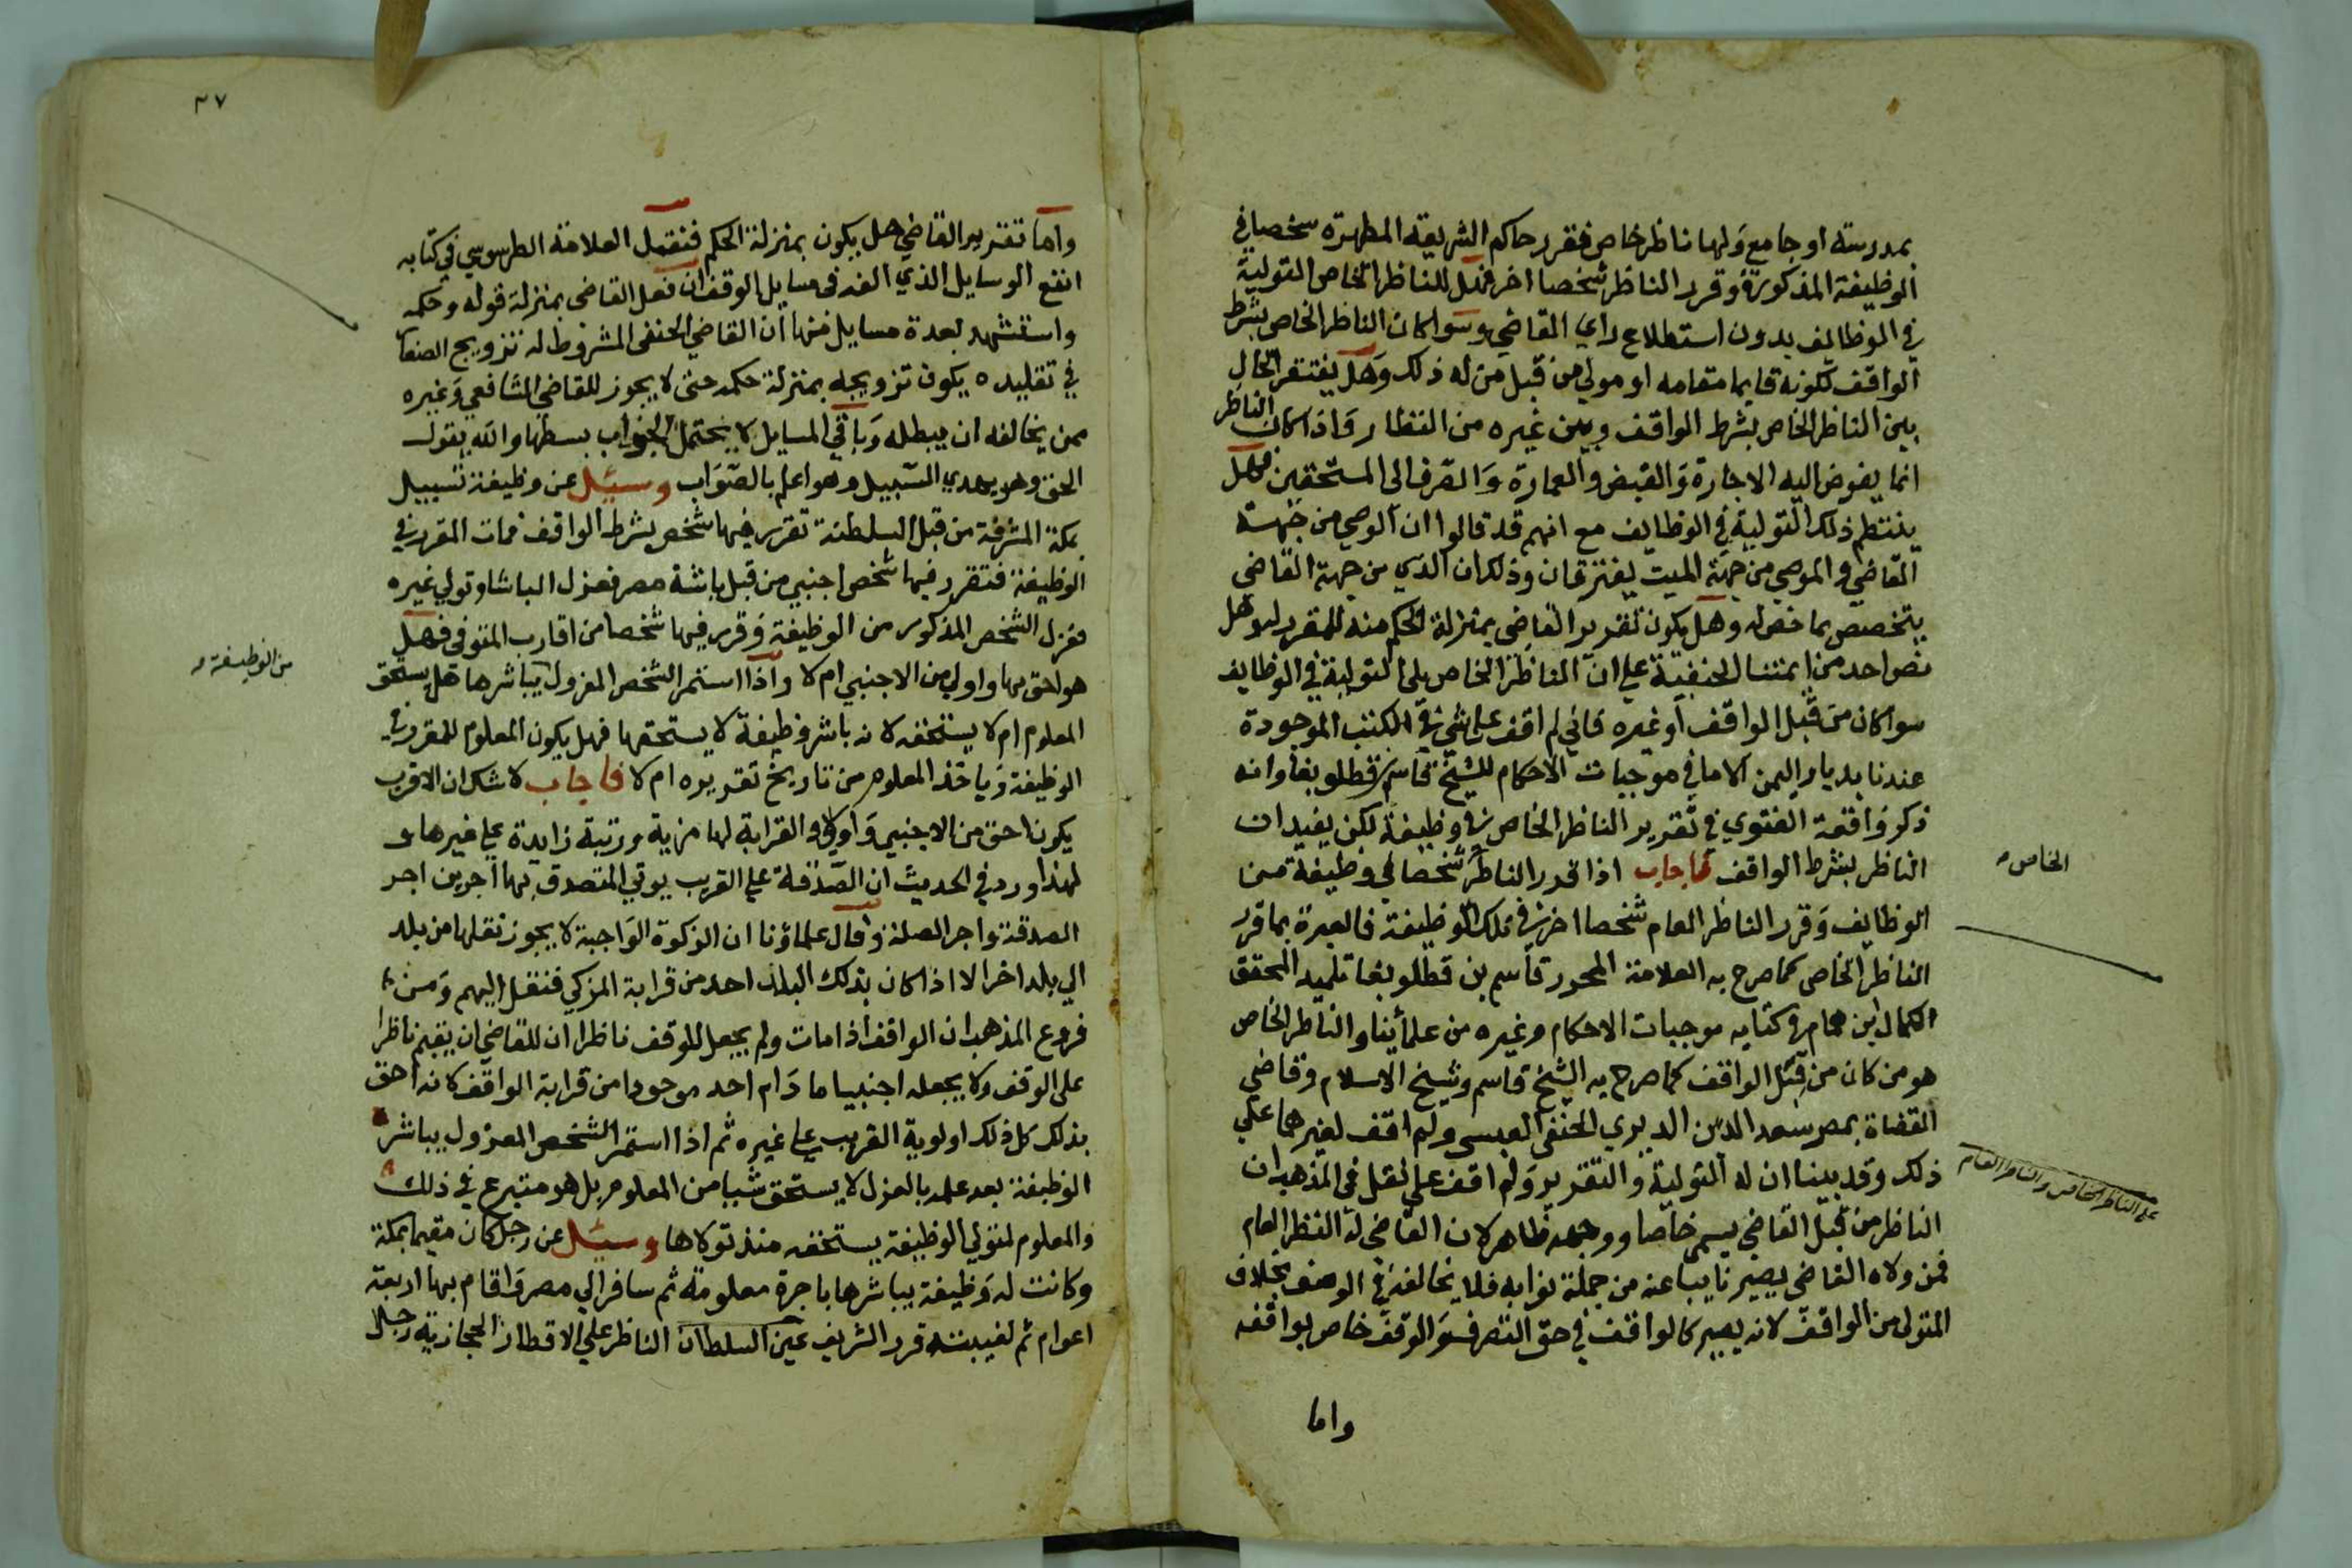 بمدرسته او جامع ولها ناظر خاص فقرر حاكم الشريعة المطهرة شخصا في
الوظيفة المذكورة وقرر الناظر شخصا اخر فهل للناظر الخاص التولية
في الوظائف بدون استطلاع راي القاضي وسوا كان الناظر الخاص بشرط
الواقف لكونه قايما مقامه او مولي من قبل من له ذلك وهل يفتقر الحال
بين الناظر الخاص بشرط الواقف وبين غيره من النظار واذا كان الناظر
انما يفوض اليه الاجارة والقبض والعمارة والصرف الى المستحقين فهل
ينتظم ذلك التولية في الوظايف مع انهم قد قالوا ان الوصي من جهة
القاضي والوصي من جهة الميت يفترقان وذلك ان الذي من جهة القاضي
يتخصص بما خص له وهل يكون تقرير القاضي بمنزلة الحكم منه للمقرر له وهل
نص احد من ايمتنا الحنفية على ان الناظر الخاص يلي التولية في الوظايف
سوا كان من قبل الواقف أو غيره فاني لم اقف على شي في الكتب الموجودة
عندنا بديار اليمن الا ما في موجبات الاحكام للشيخ قاسم بن قطلوبغا وانه
ذكر واقعة الفتوي في تقرير الناظر الخاص في وظيفة لكن يفيد ان
الناظر بشرط الواقف فاجاب اذا قرر الناظر شخصا في وظيفة من
الخاص
الوظايف وقرر الناظر العام شخصا اخر في تلك الوظيفة فالعبرة بما قرر
الناظر الخاص كما صرح به العلامة المحرر قاسم بن قطلوبغا تلميد المحقق
الكمال ابن همام في كتابه موجبات الاحكام وغيره من علمأينا والناظر الخاص
هو من كان من قبل الواقف كما صرح به الشيخ قاسم وشيخ الاسلام وقاضي
القضاة بمصر سعد الدين الديري الحنفي العبسى ولم اقف لغيرهما على
ذلك وقد بينا ان له التولية والتقرير ولم اقف على نقل في المذهب ان
على الناظر الخاص والناظر العام
الناظر من قبل القاضي يسمى خاصا ووجهه ظاهر لان القاضي له النظر العام
فمن ولاه القاضي يصير نايبا عنه من جملة نوابه فلا يخالفه في الوصف بخلاف
المتولى من الواقف لانه يصير كالواقف في حق التصرف والوقف خاص بواقفه
واما
٣٧
واما تقرير القاضي هل يكون بمنزلة الحكم فنقول العلامة الطرسوسي في كتابه
انفع الوسايل الذي الفه في مسايل الوقف ان فعل القاضي بمنزلة قوله وحكمه
واستشهد بعدة مسايل منها أن القاضي الحنفي المشروط له تزويج الصغار
في تقليده يكون تزويجه بمنزلة حكمه حتى لا يجوز للقاضي الشافعي وغيره
ممن يخالفه ان يبطله وباقي المسايل لا يحتمل الجواب بسطها والله يقول
الحق وهو يهدي السبيل وهو اعلم بالصواب وسئل عن وظيفة تسبيل
بمكة المشرفة من قبل السلطنة تقرر فيها شخص بشرط الواقف فمات المقرر في
الوظيفة فتقرر فيها شخص اجنبي من قبل باشة مصر فعزل الباشا وتولي غيره
فعزل الشخص المذكور من الوظيفة وقرر فيها شخصا من اقارب المتوفى فهل
هو احق بها واولي من الاجنبي ام لا واذا استمر الشخص المعزول يباشرها هل يستحق
من الوظيفة
المعلوم ام لا يستحقه لانه باشر وظيفة لا يستحقها فهل يكون المعلوم للمقرر في
الوظيفة وياخذ المعلوم من تاريخ تقريره ام لا فاجاب لا شك ان الاقرب
يكون احق من الاجنبي واولي والقرابة لها مزية ورتبة زايدة على غيرها و
لهذا ورد في الحديث ان الصدقة على القريب يوتي المتصدق بها أجرين اجر
الصدقة واجر الصلة وقال علماؤنا ان الزكوة الواجبة لا يجوز نقلها من بلد
الي بلد اخر الا اذا كان بذلك البلد احد من قرابة المزكي فنقل اليهم ومن
فروع المذهب ان الواقف اذا مات ولم يجعل للوقف ناظرا ان للقاضي ان يقيم ناظرا
على الوقف ولا يجعله اجنبيا ما دام احد موجودا من قرابة الواقف لانه أحق
بذلك كل ذلك اولوية القريب على غيره ثم اذا استمر الشخص المعزول يباشر
الوظيفة بعد علمه بالعزل لا يستحق شيا من المعلوم بل هو متبرع في ذلك
والمعلوم لمتولي الوظيفة يستحقه منذ تولاها وسئل عن رجل كان مقيما بمكة
وكانت له وظيفة يباشرها باجرة معلومة ثم سافر الي مصر واقام بها اربعة
اعوام ثم لغيبته قرر الشريف عين السلطان الناظر على الاقطار الحجازية رجلا